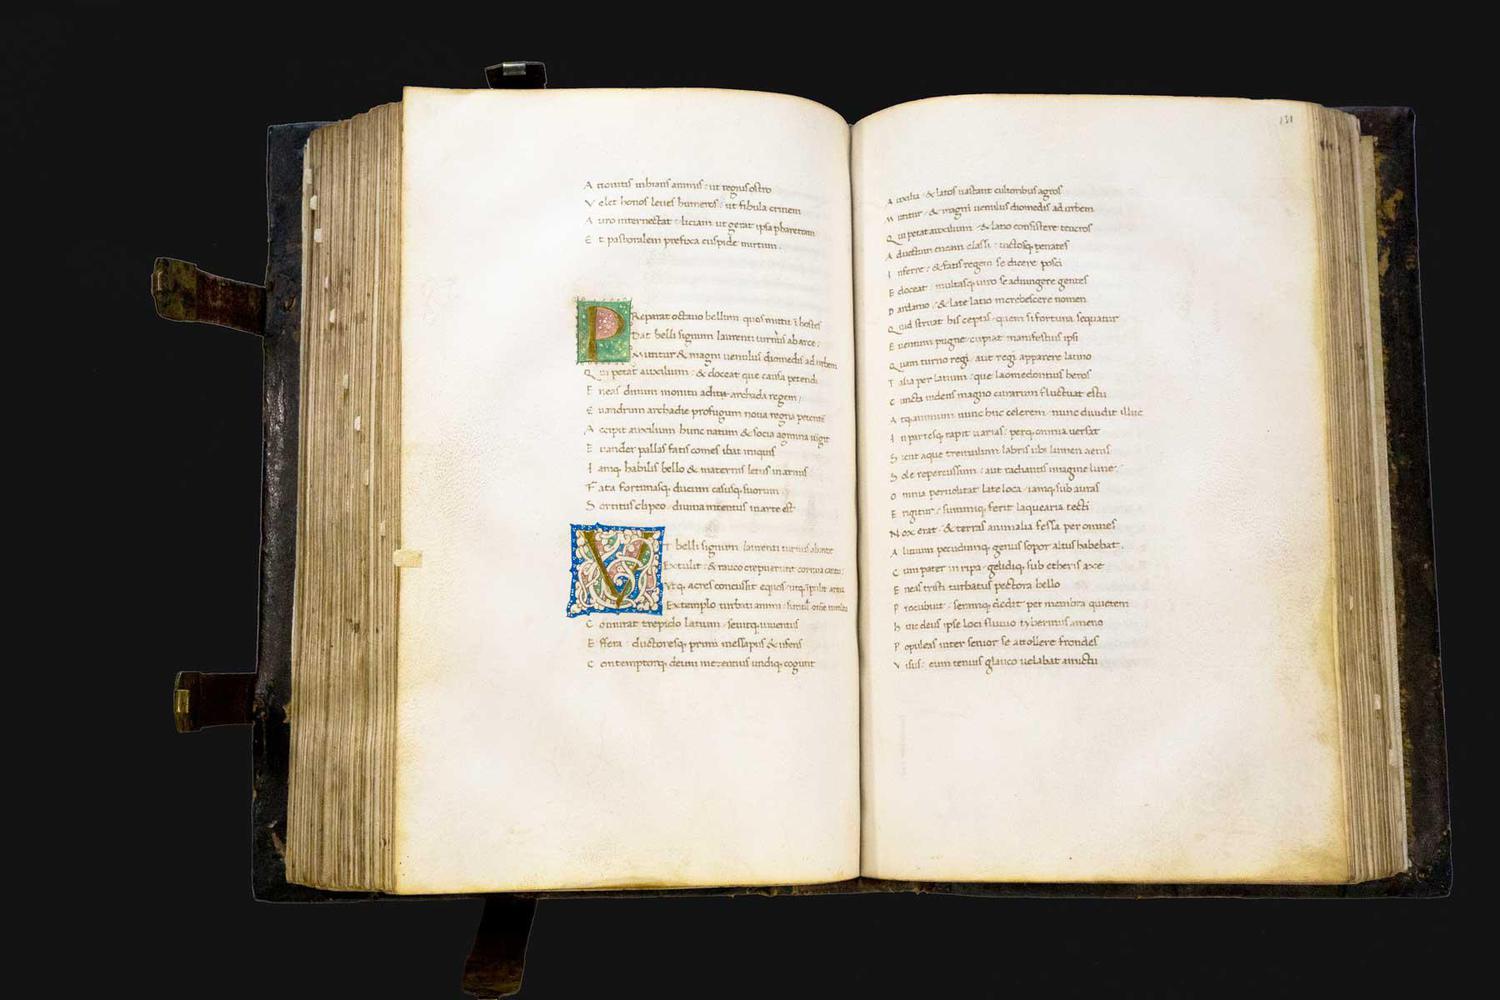 A ttonitis inhians animis : ut regius ostro
V elet honos leues humeros : ut fibula crinem
A uro internectat : liciam ut gerat ipsa pharettam
E t pastoralem prefixa cuspide mirtum .
P
Reparat octauo bellum quos mittit i hostes
Dat belli signum laurenti turnus ab arce :
Mittitur & magni uenulus diomedis ad urbem
Q ui petat auxilium : & doceat que causa petendi
E neas diuum monitu adit archada regem /
E uandrum archadie profugum noua regna petentē
A ccipit auxilium hunc natum & socia agmina iūgit
E uander pallas fatis comes ibat iniquis
I amq habilis bello & maternis letus in armis
F ata fortunasq ducum casusq suorum
S ortitus clipeo diuina mentus in arte est
V
T belli signum laurenti turnus ab arce
Extulit : & rauco crepuerunt cornua cantu :
Vtq acres concussit equos utq īpulit arma
Extemplo turbati animi : simul omne tumultu
C oniurat trepido latium seuitq iuuentus
E ffera ductoresq primi messapus & ufens
C ontemptorq deum mezentius undiq cogunt
131
A uxilia & latos uastant cultoribus agros
M ittitur & magni uenulus diomedis ad urbem
Q ui petat auxilium & latio consistere teucros
A duectum eneam classi : uictosq penates
I nferre : & fatis regem se dicere posci
E doceat multasq uiro se adiungere gentes
D ardanio & late latio increbescere nomen
Q uid struat his ceptis quem si fortuna sequatur
E uentum pugne cupiat manifestius ipsi
Q uam turno regi aut regi apparere latino
T alia per latium : que laomedontius heros
C uncta uidens magno curarum fluctuat estu
A tq animum nunc huc celerem nunc diuidit illuc
I n partesq rapit uarias : perq omnia uersat
S icut aque tremulum labris ubi lumen aenis
S ole repercussum : aut radiantis imagine lune
O mnia peruolitat late loca iamq sub auras
E rigitur summiq ferit laquearia tecti
N ox erat & terras animalia fessa per omnes
A lituum pecudumq genus sopor altus habebat .
C um pater in ripa gelidiq sub etheris axe
E neas tristi turbatus pectora bello
P rocubuit seramq dedit per membra quietem
h uic deus ipse loci fluuio tyberinus ameno
P opuleas inter senior se attollere frondes
V isus : eum tenuis glauco uelabat amictu